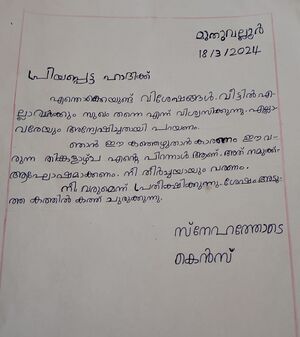 മുതുവല്ലൂർ
18/3/2024
പ്രിയപ്പെട്ട ഹാദിക്ക്
എന്തൊക്കെയുണ്ട് വിശേഷങ്ങൾ. വീട്ടിൽ എ-
ല്ലാവർക്കും സുഖം തന്നെ എന്ന് വിശ്വസിക്കുന്നു. എല്ലാ
വരേയും അന്വേഷിച്ചതായി പറയണം.
ഞാൻ ഈ കത്തെഴുതാൻ കാരണം ഈ വ-
രുന്ന തിങ്കളാഴ്ച എന്റെ പിറന്നാൾ ആണ്. അത് നമുക്ക്
ആഘോഷമാക്കണം. നീ തീർച്ചയായും വരണം.
നീ വരുമെന്ന് പ്രതീക്ഷിക്കുന്നു. ശേഷം അടു-
ത്ത കത്തിൽ കത്ത് ചുരുക്കുന്നു.
സ്നേഹത്തോടെ
കെൻസ്